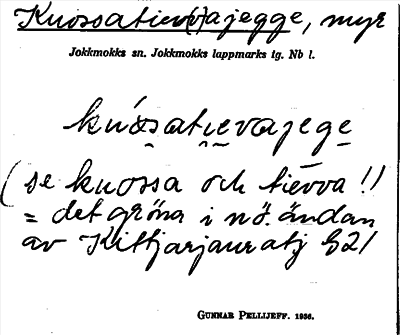 Kuossatievv(v)ajegge, myr
Jokkmokks sn. Jokkmokks lappmarks tg. Nb l.
kuossatievajege
(se kuossa och tievva!!
= det gröna i nö. ändan
av Kittjarjauratj G21
GUNNAR PELLIJEFF. 1936.